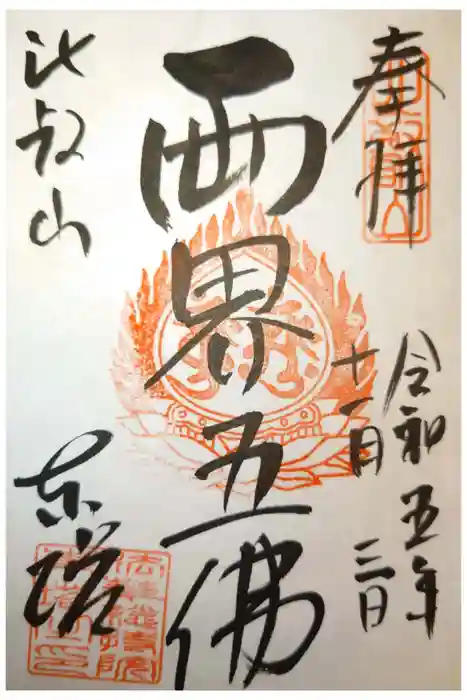 奉拝
令和五年
十一月
三日
両界五佛
比叡山
東塔